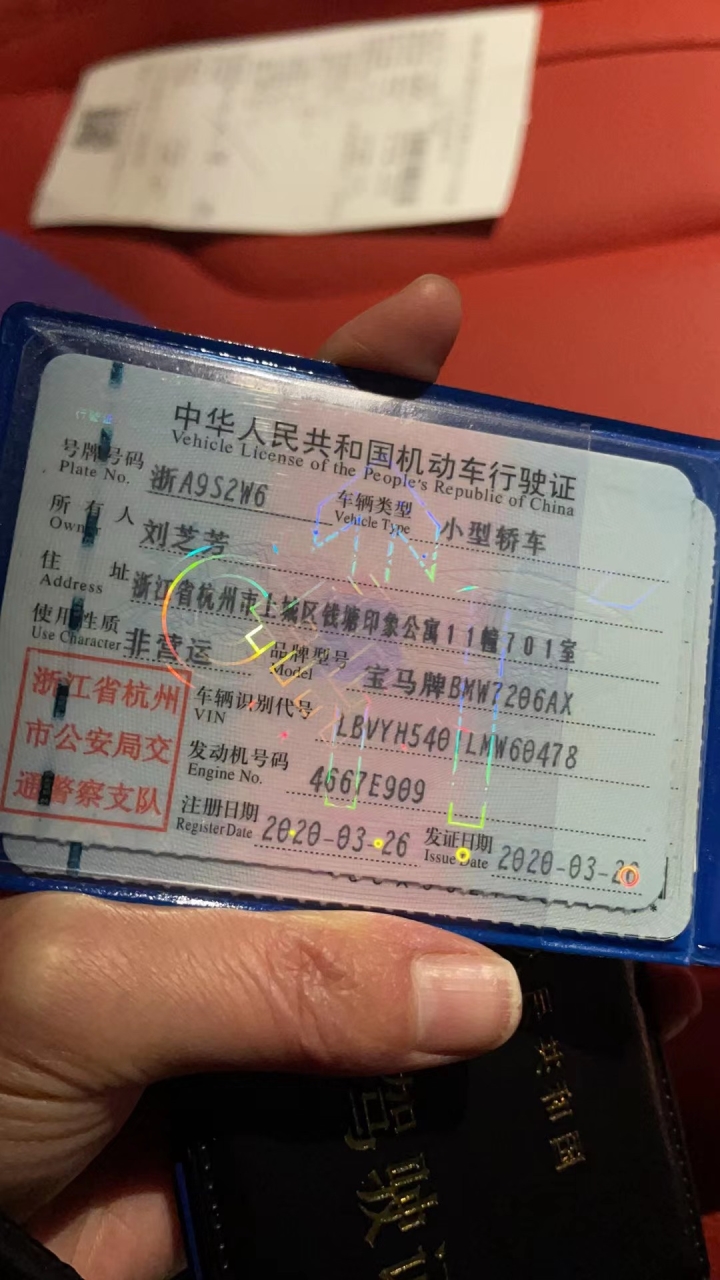 中华人民共和国机动车行驶证
Vehicle License of the People's Republic of China
号牌号码 浙A9S2W6 车辆类型 小型轿车
Plate No. Vehicle Type
所有人 刘芝芳
Owner
住址 浙江省杭州市上城区钱塘印象公寓11幢701室
Address
使用性质 非营运 品牌型号 宝马牌BMW7206AX
Use Character Model
浙江省杭州
市公安局交
通警察支队
车辆识别代号 LBVYH5401LMW60478
VIN
发动机号码 4667E909
Engine No.
注册日期 2020-03-26 发证日期 2020-03-26
Register Date Issue Date
民共和国
驾驶证